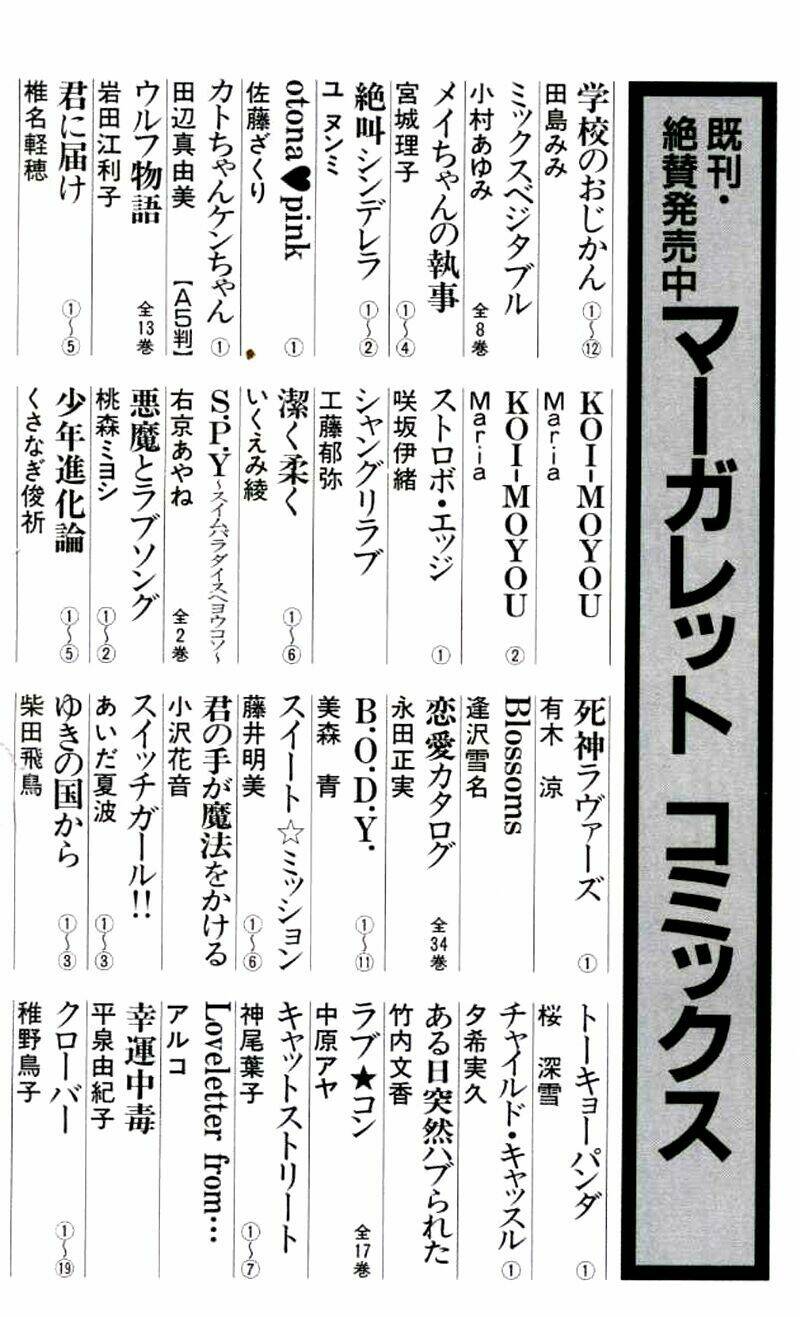 既刊・
絶賛発売中
マーガレット コミックス
学校のおじかん ①〜⑫
田島みみ
ミックスベジタブル 全8巻
小村あゆみ
メイちゃんの執事 ①〜④
宮城理子
絶叫シンデレラ ①〜②
ユ ヌンミ
otona♥pink ①
佐藤ざくり
カトちゃんケンちゃん ①
田辺真由美 【A5判】
ウルフ物語 全13巻
岩田江利子
君に届け ①〜⑤
椎名軽穂
KOI-MOYOU
Maria
KOI-MOYOU ②
Maria
ストロボ・エッジ ①
咲坂伊緒
シャングリラブ
工藤郁弥
潔く柔く ①〜⑥
いくえみ綾
S.P.Y〜スイムパラダイスヘヨウコソ〜
右京あやね 全2巻
悪魔とラブソング ①〜②
桃森ミヨシ
少年進化論 ①〜⑤
くさなぎ俊祈
死神ラヴァーズ ①
有木 涼
Blossoms
逢沢雪名
恋愛カタログ 全34巻
永田正実
B.O.D.Y. ①〜⑪
美森 青
スイート☆ミッション ①〜⑥
藤井明美
君の手が魔法をかける
小沢花音
スイッチガール!! ①〜③
あいだ夏波
ゆきの国から ①〜③
柴田飛鳥
トーキョーパンダ ①
桜 深雪
チャイルド・キャッスル ①
夕希実久
ある日突然ハブられた
竹内文香
ラブ★コン 全17巻
中原アヤ
キャットストリート ①〜⑦
神尾葉子
Loveletter from…
アルコ
幸運中毒
平泉由紀子
クローバー ①〜⑲
稚野鳥子